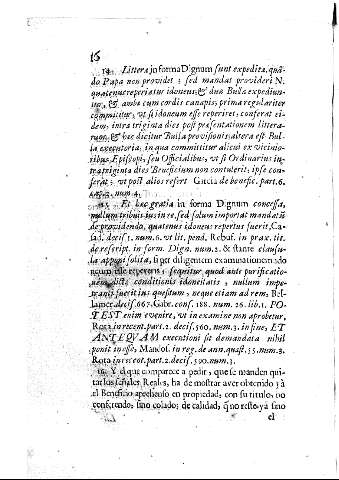 16
14. Litteræ in forma Dignum sunt expeditæ, quã-
do Papa non providet; sed mandat provideri N.
quatenus reperiatur idoneus; & duæ Bullæ expediun-
tur, & ambæ cum cordis canapis; prima regulariter
committitur, ut si idoneum esse reperiret; conferat ei-
dem, intra triginta dies post præsentationem littera-
rum, & hæc dicitur Bulla provisionis; altera est Bul-
la executoria, in qua committitur alicui ex vicinio-
ribus Episcopis, seu Officialibus, ut si Ordinarius in-
tra triginta dies Beneficium non contulerit, ipse con-
ferat; ut post alios refert Garcia de benefic. part. 6.
cap. 2. num. 4.
15. Et hæc gratia in forma Dignum concessa,
nullum tribuit ius in re, sed solum importat mandatũ
de providendo, quatenus idoneus repertus fuerit, Ca-
sad. decis. 1. num. 6. ut lit. pend. Rebuf. in prax. tit.
de rescript. in form. Dign. num. 2. & stante clausu-
la apponi solita, si per diligentem examinationem ad
hoc esse repereris; sequitur, quod ante purificatio-
nem dictæ conditionis idoneitatis, nullum impe-
tranti fuerit ius quæsitum, neque etiam ad rem, Bel-
lamer. decis. 667. Gabr. cons. 188. num. 26. lib. 1. PO-
TEST enim evenire, ut in examine non aprobetur,
Rota in recent. part. 2. decis. 360. num. 3. in fine, ET
ANTEQUAM executioni sit demandata nihil
ponit in esse, Mandos. in reg. de ann. quæst. 35. num. 8.
Rota in recent. part. 2. decis. 390. num. 3.
16. Y el que comparece a pedir, que se manden qui-
tar los señales Reales, ha de mostrar aver obtenido; â
el Beneficio aprehenso en propiedad, con su titulo, no
conferendo, sino colado; de calidad, q̃ no reste yà sino
el